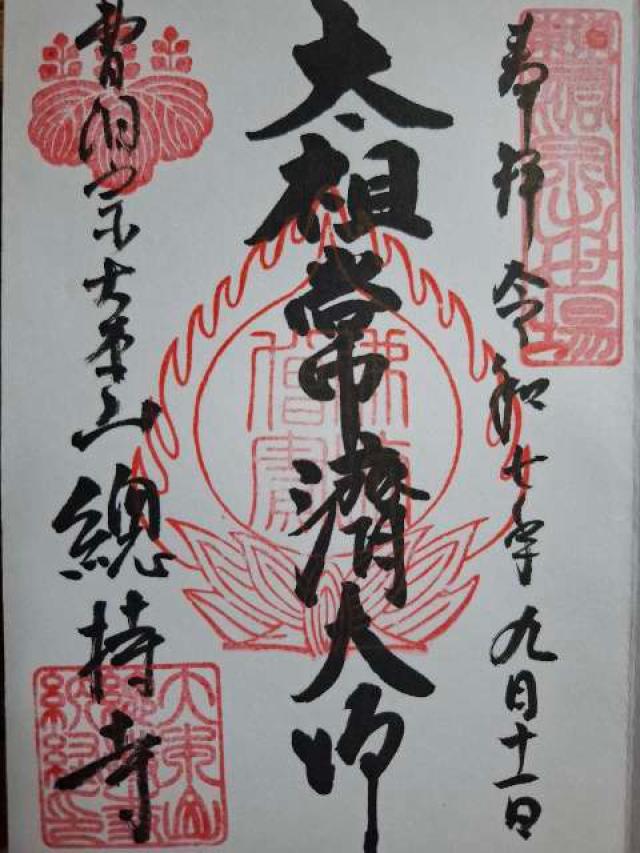 奉拝 令和七年九月十一日
太祖常濟大師
曹洞宗大本山 總持寺